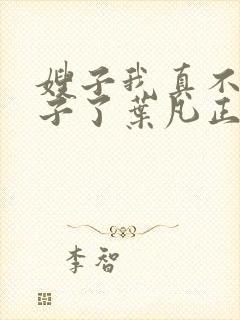 嫂子我真不
子了葉凡正
李智